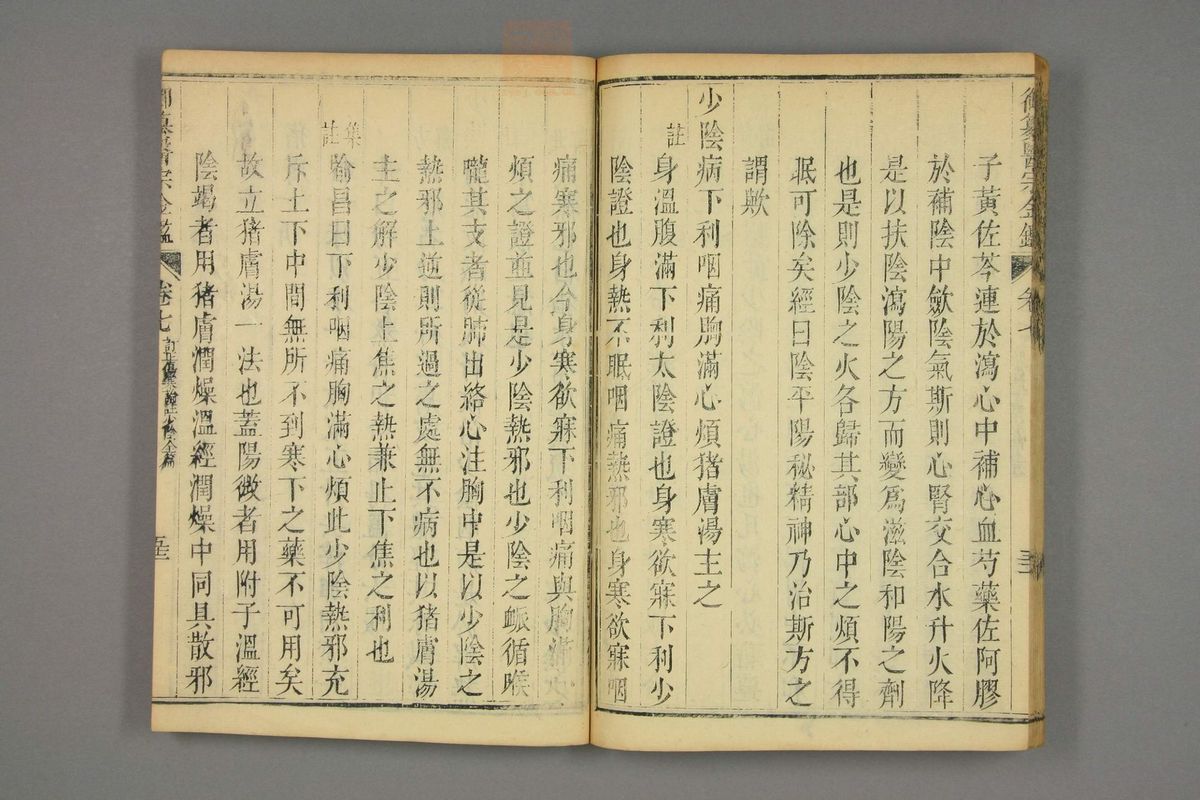 御纂醫宗金鑑 卷七
子黃佐芩連於瀉心中補心血芍藥佐阿膠
於補陰中斂陰氣斯則心腎交合水升火降
是以扶陰瀉陽之方而變爲滋陰和陽之劑
也是則少陰之火各歸其部心中之煩不得
眠可除矣經曰陰平陽秘精神乃治斯方之
謂歟
少陰病下利咽痛胸滿心煩猪膚湯主之
註身溫腹滿下利太陰證也身寒欲寐下利少
陰證也身熱不眠咽痛熱邪也身寒欲寐咽
痛寒邪也今身寒欲寐下利咽痛與胸滿心
煩之證並見是少陰熱邪也少陰之脈循喉
嚨其支者從肺出絡心注胸中是以少陰之
熱邪上逆則所過之處無不病也以猪膚湯
主之解少陰上焦之熱兼止下焦之利也
集註喻昌曰下利咽痛胸滿心煩此少陰熱邪充
斥上下中間無所不到寒下之藥不可用矣
故立猪膚湯一法也蓋陽微者用附子溫經
陰竭者用猪膚潤燥溫經潤燥中同具散邪
御纂醫宗金鑑 卷七